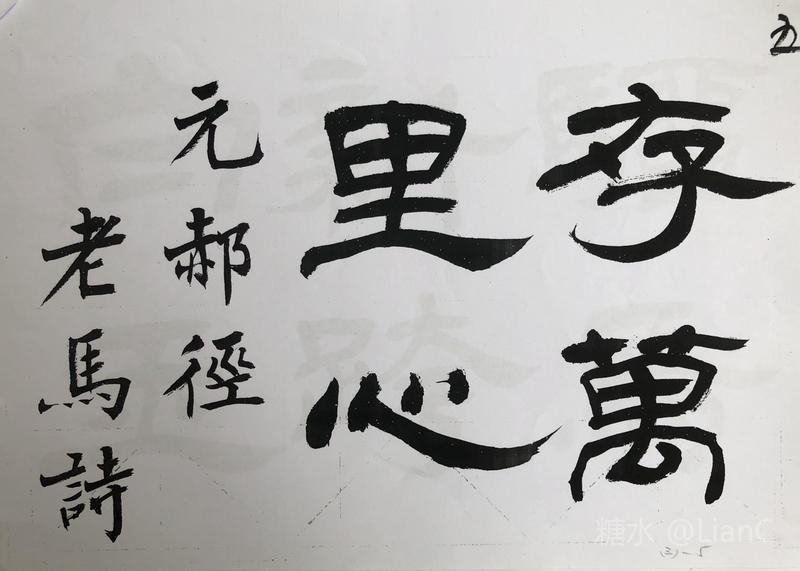 五
存萬
里心
元郝徑
老馬詩
(三)-5
糖水 @LianC